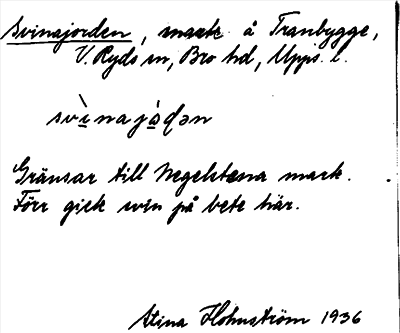 Svinajorden, mark å Tranbygge,
V. Ryds sn, Bro hd, Upps. l.
svìnajo̱ɖən
Gränsar till Negelstena mark.
Förr gick svin på bete här.
Stina Holmström 1936